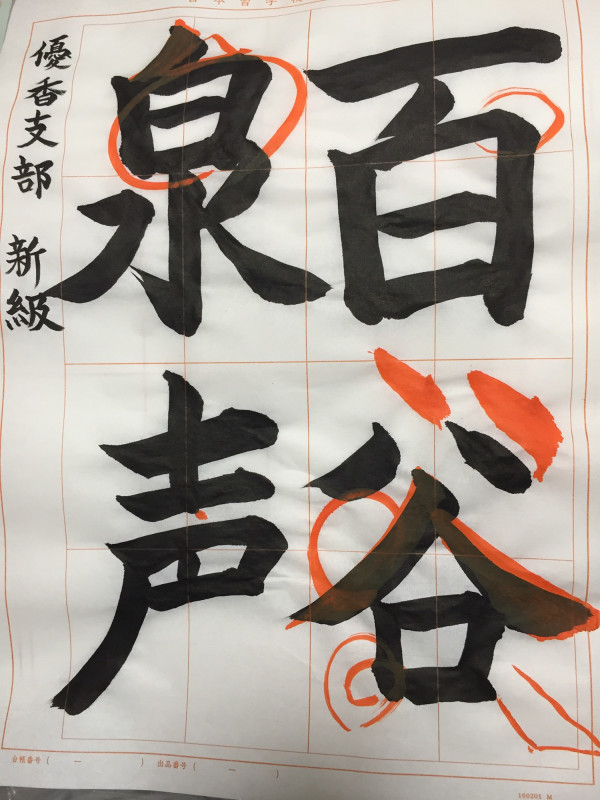 百谷
泉声
優香支部 新級
台帳番号(　ー　)　出品番号(　ー　)
160201 M